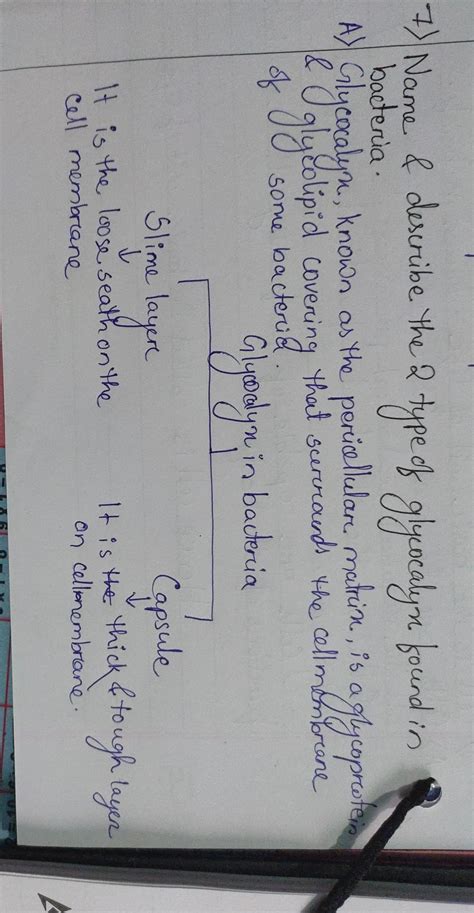 7) Name & describe the 2 type of glycocalyx found in
bacteria.
A) Glycocalyx, known as the pericellular matrix, is a glycoprotein
& glycolipid covering that surrounds the cell membrane
of some bacteria.
Glycocalyx in bacteria
Slime layer
Capsule
It is the loose seath on the
cell membrane
It is the thick & tough layer
on cell membrane.